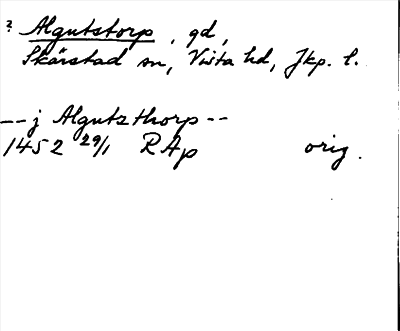 ? Algutstorp, gd,
Skärstad sn, Vista hd, Jkp. l.
-- j Algutzthorp --
1452 29/1 RAp orig.